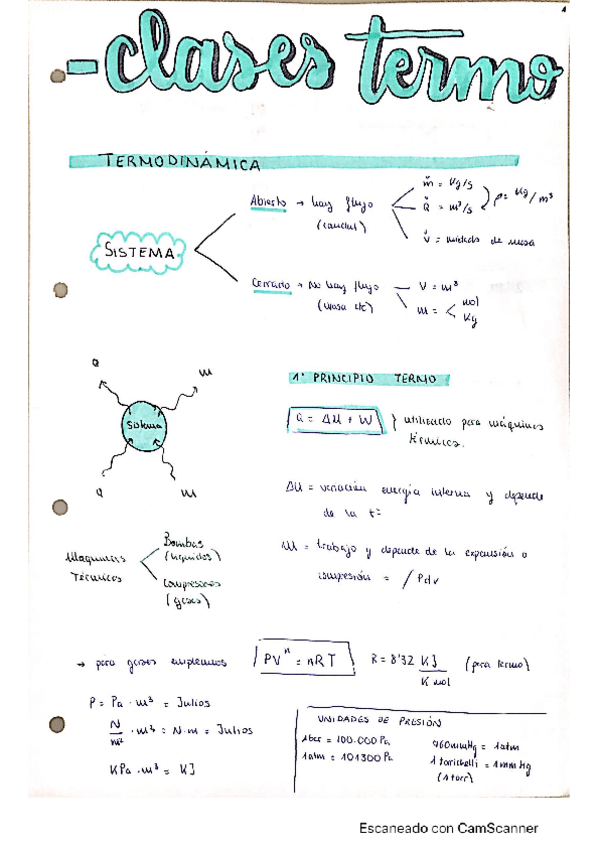 1
- clases termo
TERMODINÁMICA
SISTEMA
Abierto → hay flujo
(caudal)
ṁ = kg/s
Q̇ = m³/s
ρ = kg/m³
V̇ =
de masa
Cerrado → No hay flujo
(masa cte)
V = m³
m = < mol
kg
Q
W
Sistema
Q
W
1º PRINCIPIO TERMO
Q = ΔU + W } utilizado para máquinas
térmicas.
ΔU = variación energía interna y depende
de la tª
W = trabajo y depende de la expansión o
compresión = ∫Pdv
Máquinas
Térmicas
Bombas
(líquidos)
Compresores
(gases)
→ para gases empleamos
PVⁿ = nRT
R = 8'32 KJ
K mol
(para termo)
P = Pa · m³ = Julios
N/m² · m³ = N·m = Julios
KPa · m³ = KJ
UNIDADES DE PRESIÓN
1bar = 100.000 Pa
1atm = 101300 Pa
760mmHg = 1atm
1 torichelli = 1mmHg
(1 torr)
Escaneado con CamScanner